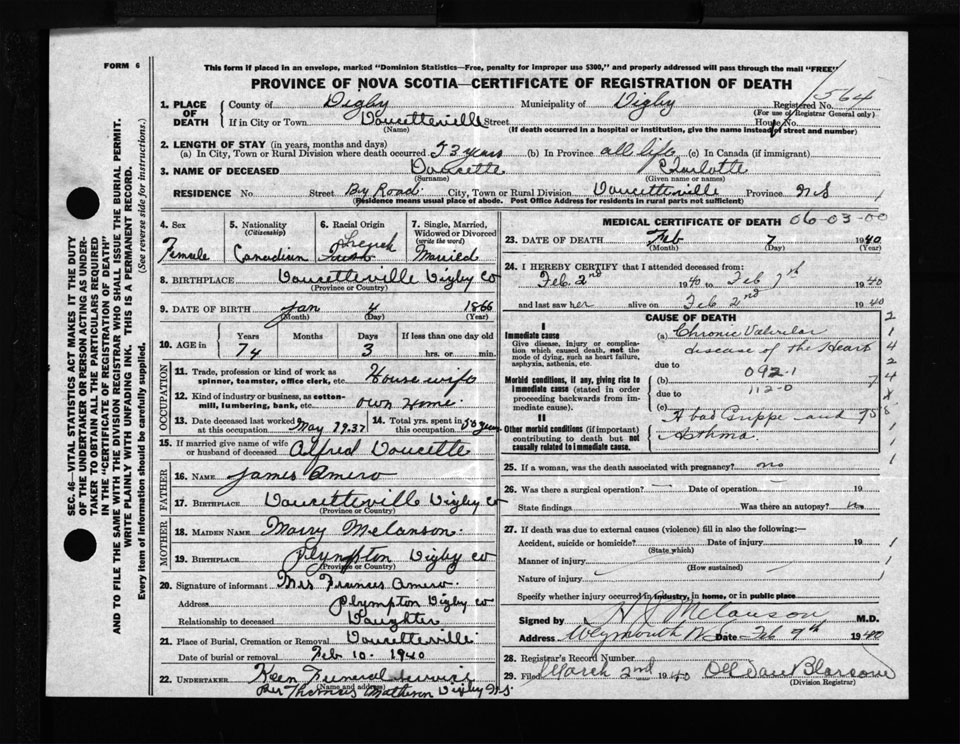 FORM 6
This form if placed in an envelope, marked "Dominion Statistics—Free, penalty for improper use $300," and properly addressed will pass through the mail "FREE"
PROVINCE OF NOVA SCOTIA—CERTIFICATE OF REGISTRATION OF DEATH
1. PLACE OF DEATH
County of Digby Municipality of Digby Registered No. 564
(For use of Registrar General only)
If in City or Town Doucetteville Street House No.
(Name) (If death occurred in a hospital or institution, give the name instead of street and number)
2. LENGTH OF STAY (in years, months and days)
(a) In City, Town or Rural Division where death occurred 73 years (b) In Province all life (c) In Canada (if immigrant)
3. NAME OF DECEASED Doucette Charlotte
(Surname) (Given name or names)
RESIDENCE No Street By Road City, Town or Rural Division Doucetteville Province N.S
(Residence means usual place of abode. Post Office Address for residents in rural parts not sufficient)
4. Sex Female
5. Nationality (Citizenship) Canadian
6. Racial Origin French
7. Single, Married, Widowed or Divorced (write the word) Married
8. BIRTHPLACE Doucetteville Digby Co
(Province or Country)
9. DATE OF BIRTH Jan 4 1866
(Month) (Day) (Year)
10. AGE in Years Months Days If less than one day old
74 3 hrs. or min.
OCCUPATION
11. Trade, profession or kind of work as spinner, teamster, office clerk, etc. House wife
12. Kind of industry or business, as cotton-mill, lumbering, bank, etc. own Home
13. Date deceased last worked at this occupation May
14. Total yrs. spent in this occupation 50 years
15. If married give name of wife or husband of deceased Alfred Doucette
FATHER
16. NAME James Amero
17. BIRTHPLACE Doucetteville Digby Co
(Province or Country)
MOTHER
18. MAIDEN NAME Mary Melanson
19. BIRTHPLACE Plympton Digby Co
(Province or Country)
20. Signature of informant Mrs Frances Amero
Address Plympton Digby Co
Relationship to deceased Daughter
21. Place of Burial, Cremation or Removal Doucetteville
Date of burial or removal Feb 10. 1940
22. UNDERTAKER Keen Funeral Service
(Name and address)
Per Thomas Matheson Digby N.S.
MEDICAL CERTIFICATE OF DEATH 06-03-00
23. DATE OF DEATH Feb 7 1940
(Month) (Day) (Year)
24. I HEREBY CERTIFY that I attended deceased from:
Feb. 2nd 1940 to Feb 7th 1940
and last saw her alive on Feb 2nd 1940
CAUSE OF DEATH
I
Immediate cause
Give disease, injury or complication which caused death, not the mode of dying, such as heart failure, asphyxia, asthenia, etc.
(a) Chronic Valvular
disease of the Heart
due to
Morbid conditions, if any, giving rise to immediate cause (stated in order proceeding backwards from immediate cause).
092-1
(b)
112-0
due to
(c)
II
Other morbid conditions (if important) contributing to death but not causally related to immediate cause.
A bad Grippe and
Asthma
25. If a woman, was the death associated with pregnancy? no
26. Was there a surgical operation? — Date of operation 19
State findings Was there an autopsy? no
27. If death was due to external causes (violence) fill in also the following:—
Accident, suicide or homicide? Date of injury 19
(State which)
Manner of injury
(How sustained)
Nature of injury
Specify whether injury occurred in industry, in home, or in public place
Signed by H J Melanson M.D.
Address Weymouth N.S. Date Feb 9th 1940
28. Registrar's Record Number
29. Filed March 2nd 1940
(Division Registrar)
SEC. 46—VITAL STATISTICS ACT MAKES IT THE DUTY
OF THE UNDERTAKER OR PERSON ACTING AS UNDERTAKER
TO OBTAIN ALL THE PARTICULARS REQUIRED
IN THE "CERTIFICATE OF REGISTRATION OF DEATH"
AND TO FILE THE SAME WITH THE DIVISION REGISTRAR WHO SHALL ISSUE THE BURIAL PERMIT.
WRITE PLAINLY WITH UNFADING INK. THIS IS A PERMANENT RECORD.
Every item of information should be carefully supplied. (See reverse side for instructions.)